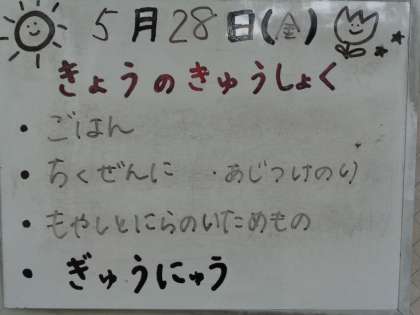 5月28日(金)
きょうのきゅうしょく
・ごはん
・ちくぜんに ・あじつけのり
・もやしとにらのいためもの
・ぎゅうにゅう